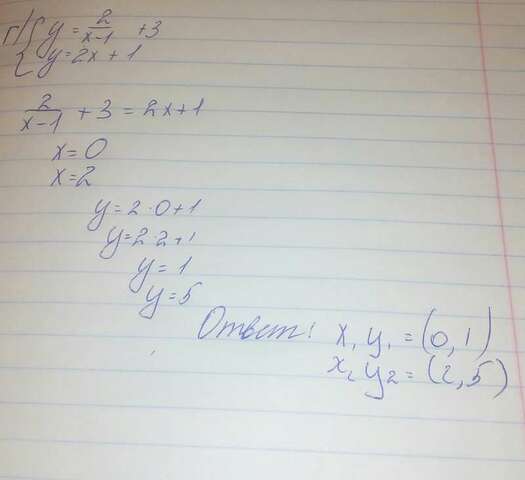 г) { y = 2/(x-1) + 3
y = 2x + 1
2/(x-1) + 3 = 2x + 1
x = 0
x = 2
y = 2 · 0 + 1
y = 2 · 2 + 1
y = 1
y = 5
Ответ: x₁ y₁ = (0, 1)
x₂ y₂ = (2, 5)